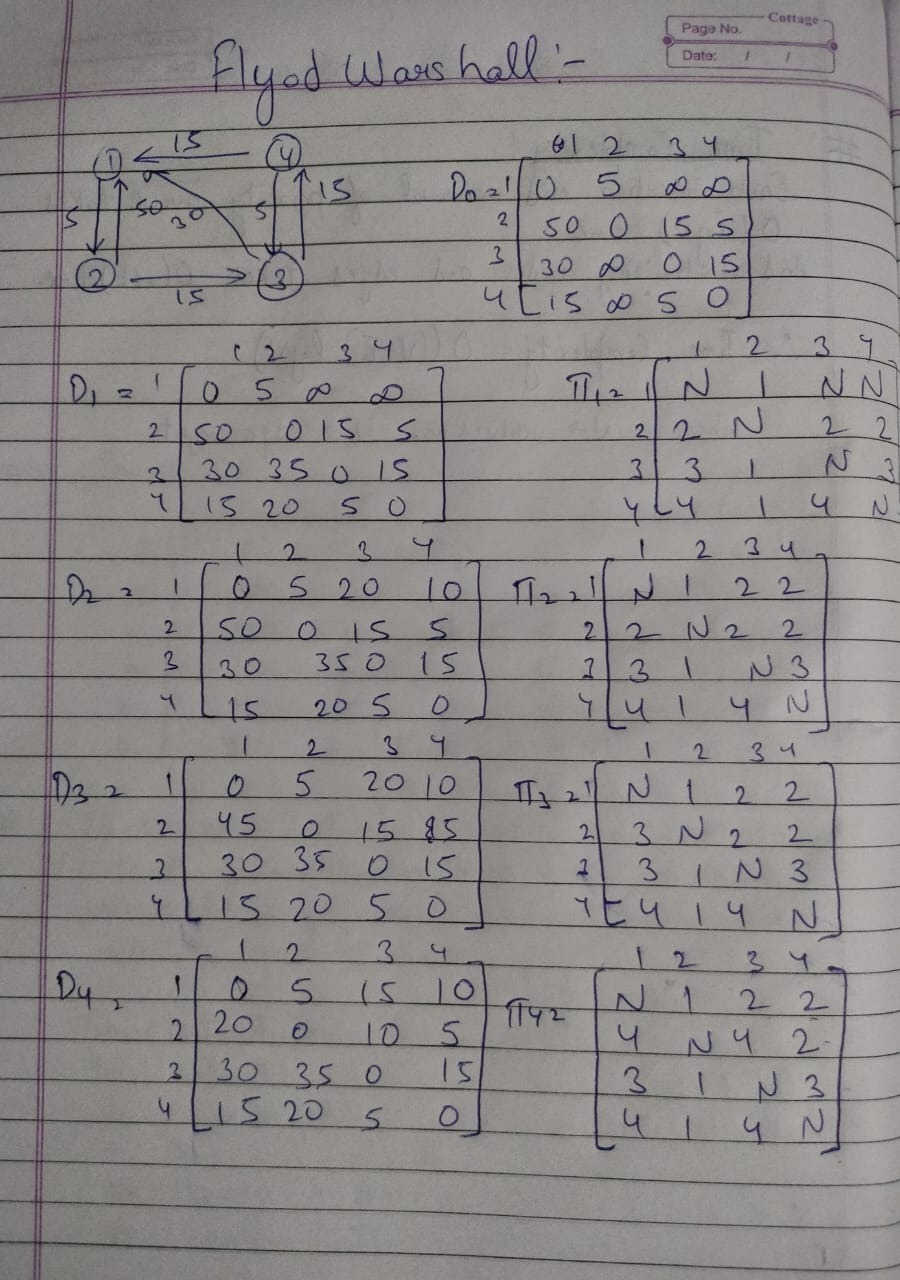 Cottage
Page No.
Date: / /
Flyod Warshall :-
1 15 4
5 50 30 5 15
2 15 3
1 2 3 4
D0 = 1 0 5 ∞ ∞
2 50 0 15 5
3 30 ∞ 0 15
4 15 ∞ 5 0
1 2 3 4
D1 = 1 0 5 ∞ ∞
2 50 0 15 5
3 30 35 0 15
4 15 20 5 0
1 2 3 4
Π1 = 1 N 1 N N
2 2 N 2 2
3 3 1 N 3
4 4 1 4 N
1 2 3 4
D2 = 1 0 5 20 10
2 50 0 15 5
3 30 35 0 15
4 15 20 5 0
1 2 3 4
Π2 = 1 N 1 2 2
2 2 N 2 2
3 3 1 N 3
4 4 1 4 N
1 2 3 4
D3 = 1 0 5 20 10
2 45 0 15 5
3 30 35 0 15
4 15 20 5 0
1 2 3 4
Π3 = 1 N 1 2 2
2 3 N 2 2
3 3 1 N 3
4 4 1 4 N
1 2 3 4
D4 = 1 0 5 15 10
2 20 0 10 5
3 30 35 0 15
4 15 20 5 0
1 2 3 4
Π4 = N 1 2 2
4 N 4 2
3 1 N 3
4 1 4 N